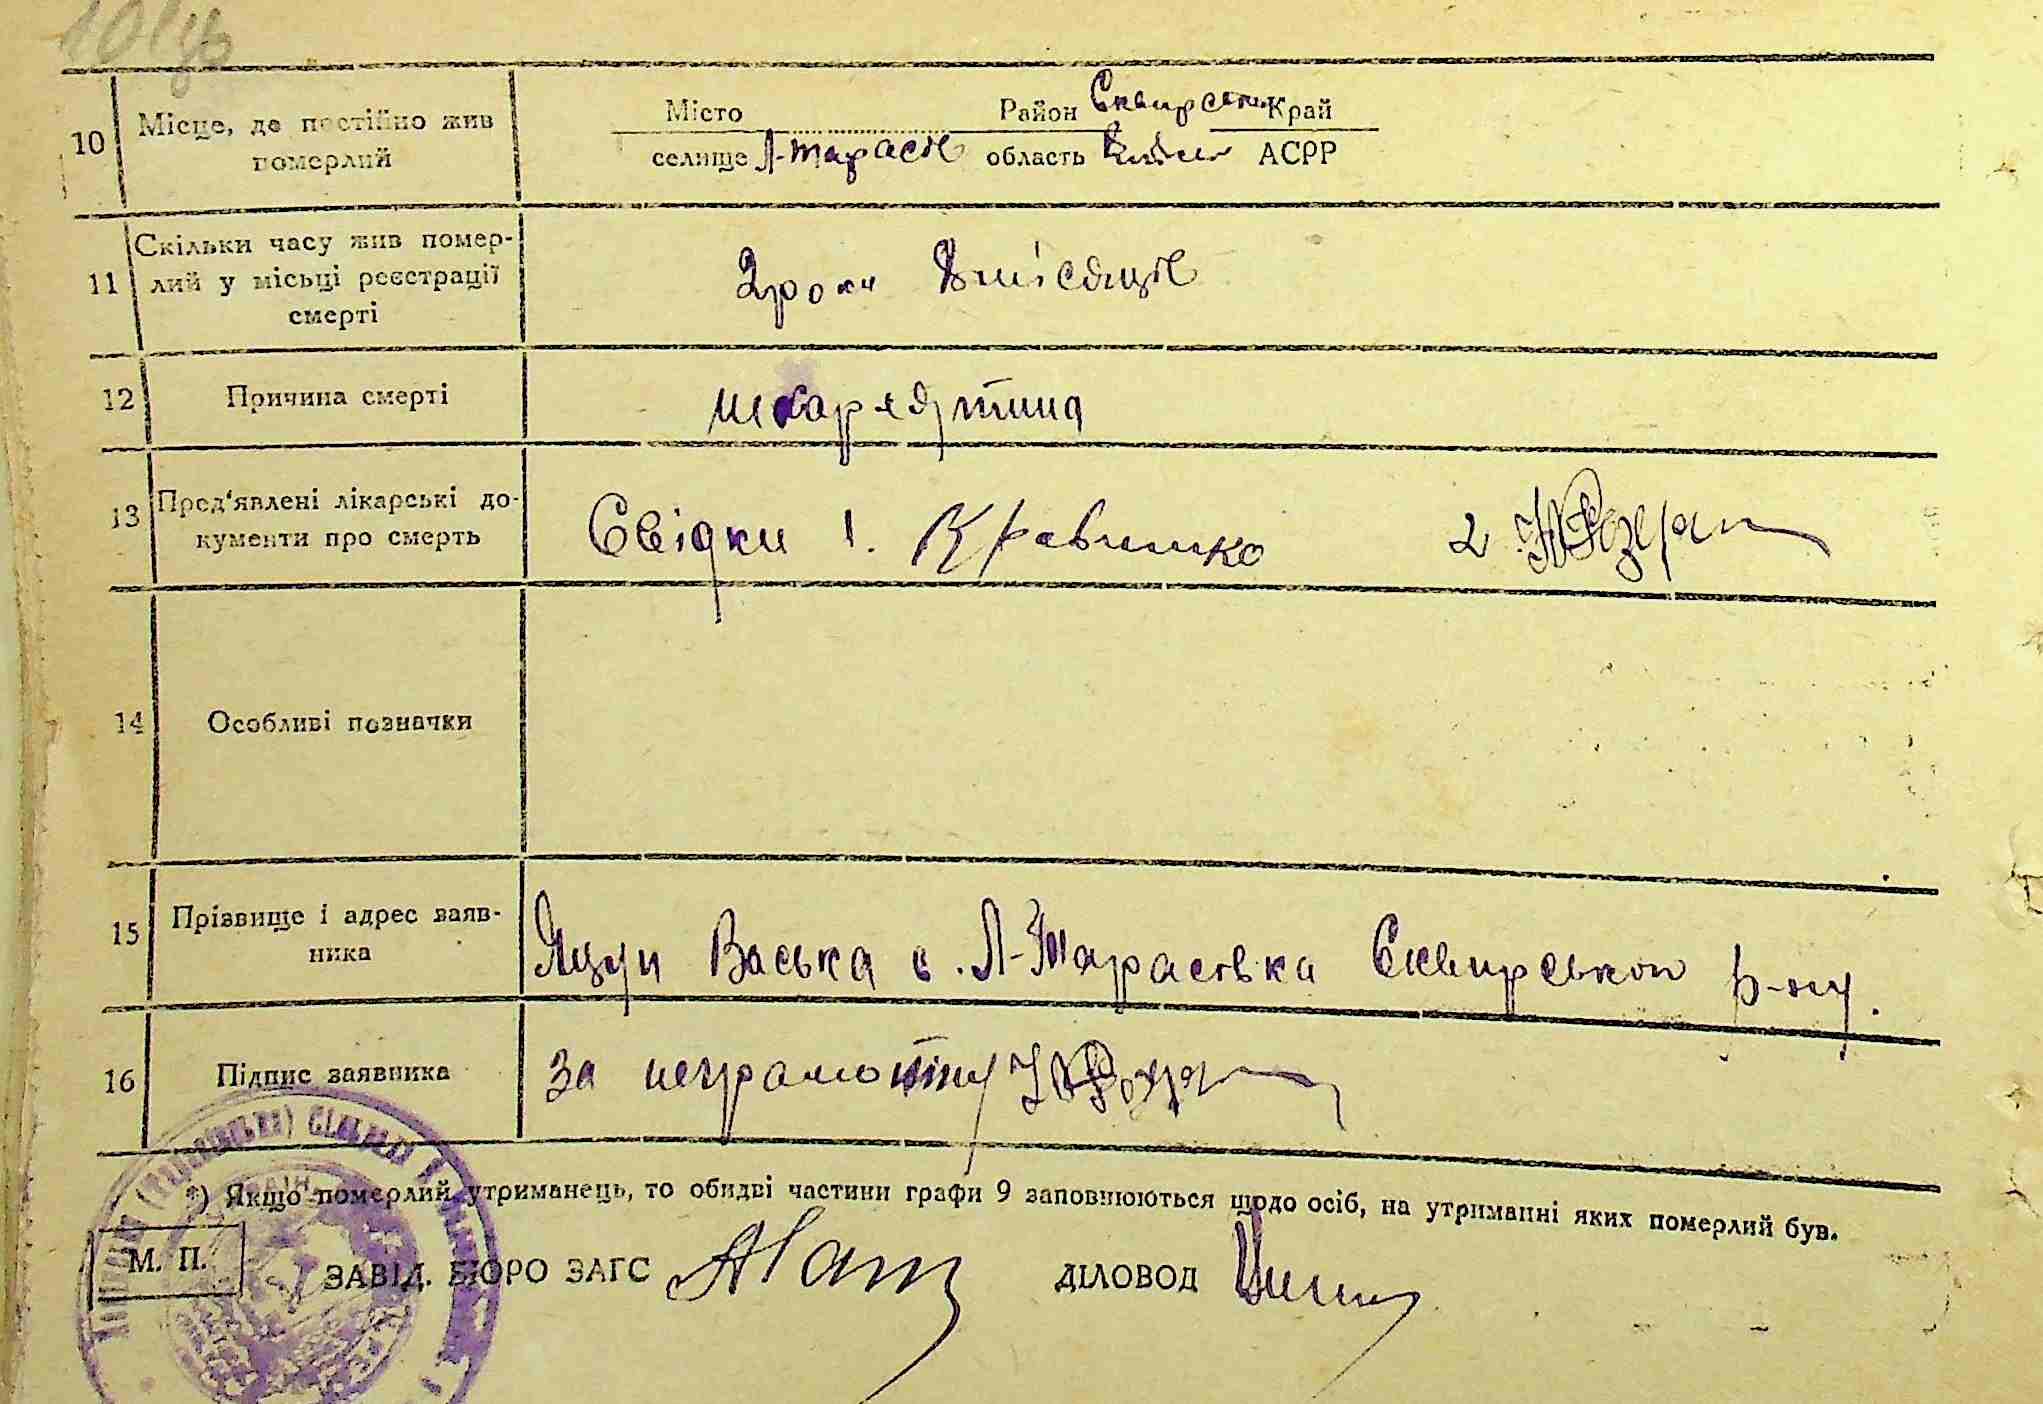 10
Місце, де постійно жив
померлий
Місто
Район Сквирськ Край
селище Л-Тарасів область Київс АСРР
11
Скільки часу жив помер-
лий у місьці реєстрації
смерті
2 роки 8 місяців
12
Причина смерті
шкарлятина
13
Пред‘явлені лікарські до-
кументи про смерть
Свідки 1. Кравченко 2
14
Особливі позначки
15
Прізвище і адрес заяв-
ника
Яцун Васька с. Л-Тарасівка Сквирськои р-ну.
16
Підпис заявника
за неграмотну
*) Якщо померлий утриманець, то обидві частини графи 9 заповнюються щодо осіб, на утриманні яких померлий був.
М. П.
ЗАВІД. БЮРО ЗАГС
ДІЛОВОД